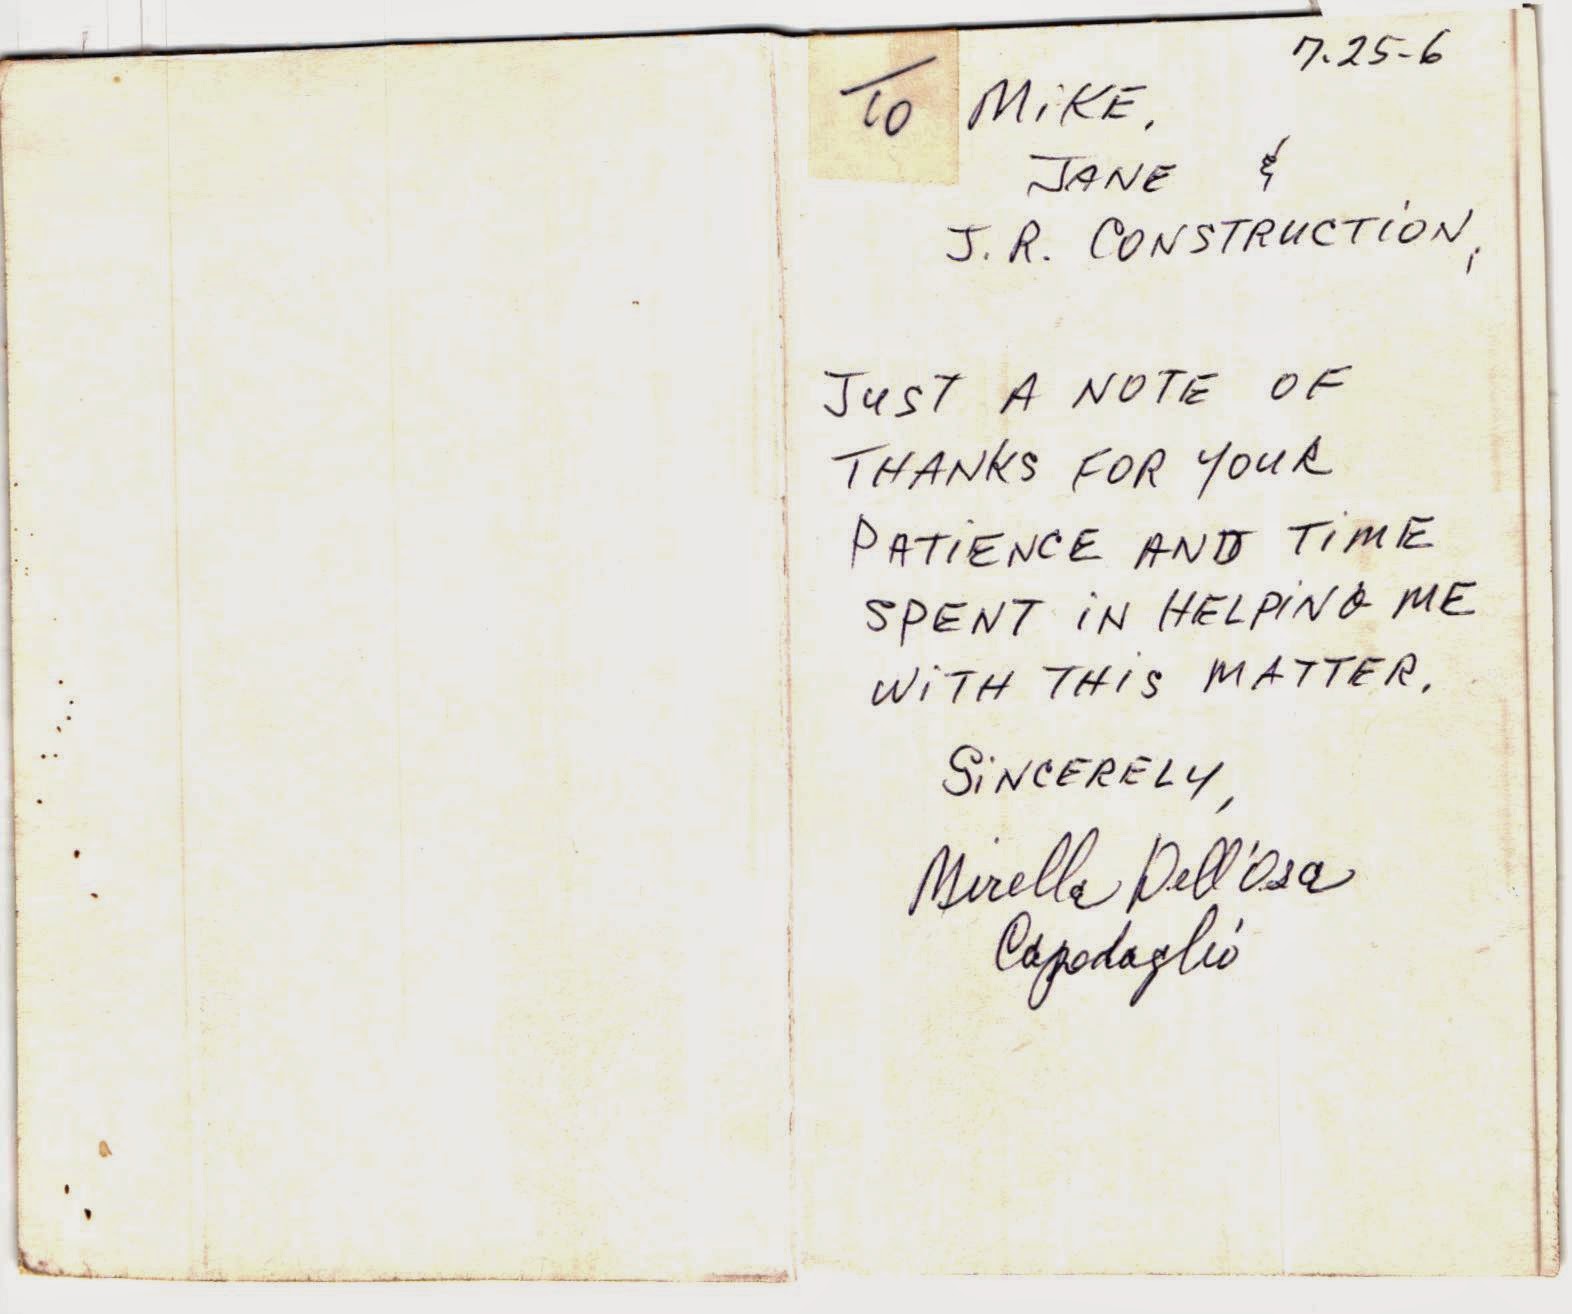 7.25-6
To MiKE,
JANE &
J.R. CONSTRUCTiON,
JUST A NOTE OF
THANKS FOR YOUR
PATiENCE AND TiME
SPENT iN HELPiNG ME
WiTH THiS MATTER.
SiNCERELY,
Mirella Dell'Osa
Capodaglio